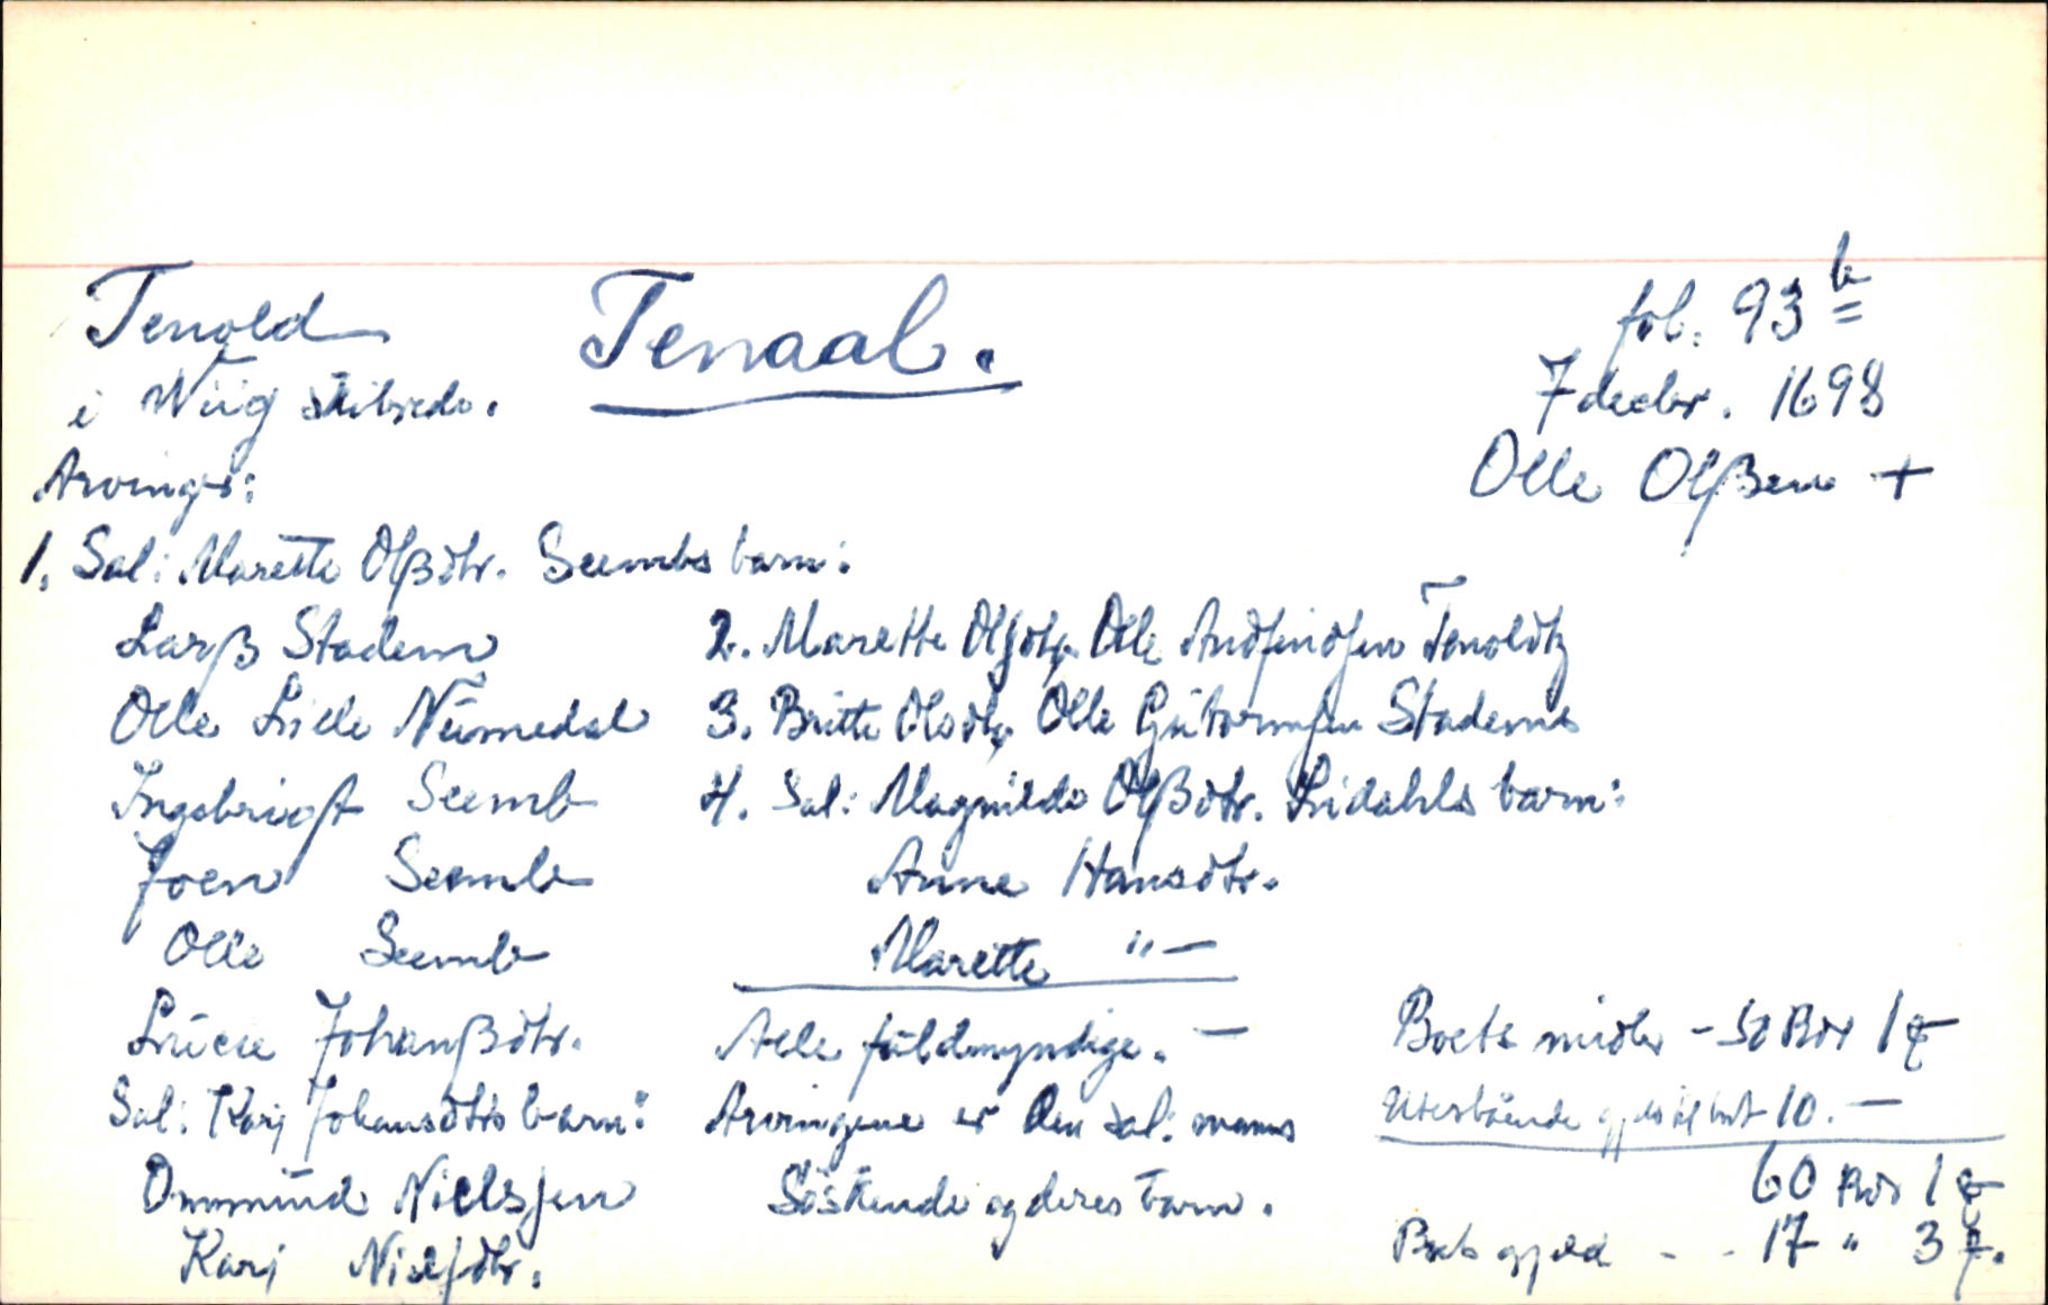 Tenold
i Wiig skibrede.
Tenaal.
fol. 93 b
7 decbr. 1698
Olle Olßen +
Arvinger:
1. Sal: Marette Olßdtr. Seembs barn:
Larß Stadem
Olle Lille Nümedal
Ingebrigt Seemb
Joen Seemb
Olle Seemb
Lücie Johanßdtr.
Sal: Karj Johansdtrs barn:
Ommünd Nielsen
Karj Nielsdtr.
2. Marette Olsdtr, Olle Andfindsen Tenoldtz
3. Britte Olsdtr, Olle Gütormsen Stadems
4. Sal: Magnilde Olßdtr. Lidahls barn:
Anne Hansdtr.
Marette "—
Alle füldmyndige. —
Arvingene er den sal: manns
Söskende og deres barn.
Boets midler - 50 Rdr 1
Uterstående 10. —
60 Rdr 1
Boets gjeld - - 17 " 3